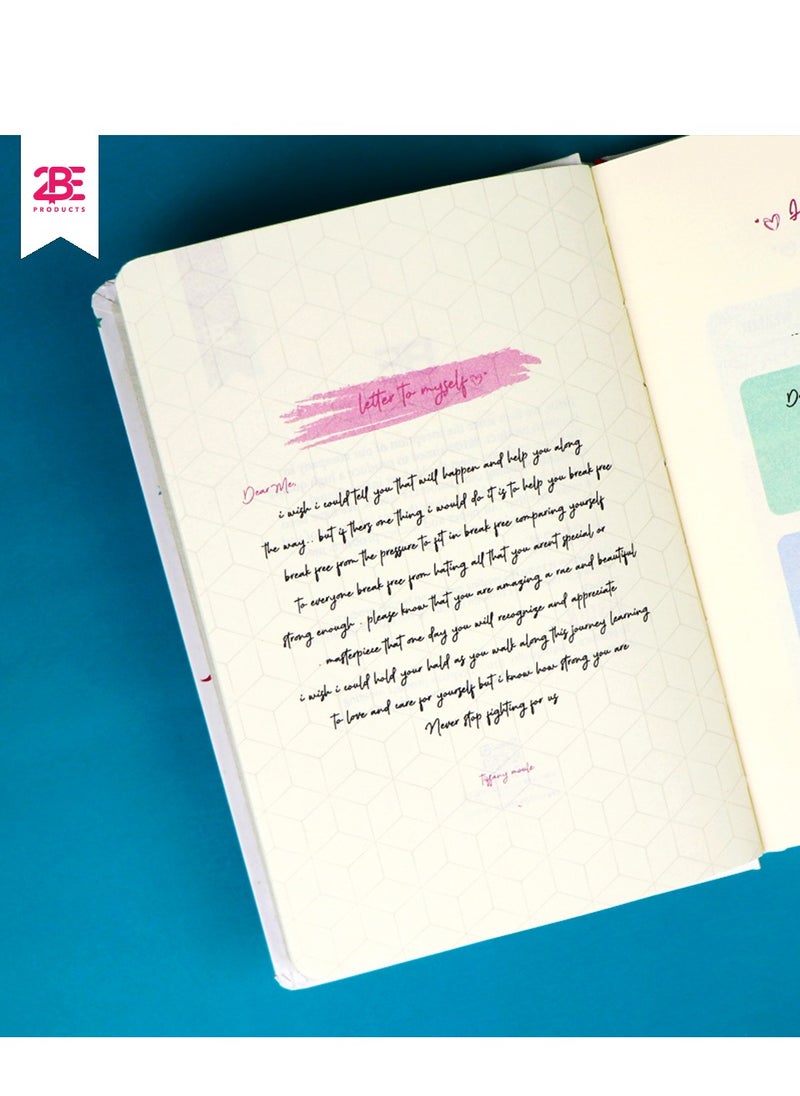 2BE
PRODUCTS
letter to myself
Dear Me,
i wish i could tell you that will happen and help you along
the way.. but if thers one thing i would do it is to help you break free
break free from the pressure to fit in break free comparing yourself
to everyone break free from hating all that you arent special or
strong enough . please know that you are amazing a rae and beautiful
. masterpiece that one day you will recognize and appreciate
i wish i could hold your hald as you walk along this journey learning
to love and care for yourself but i know how strong you are
Never stop fighting for us
tiffany moule